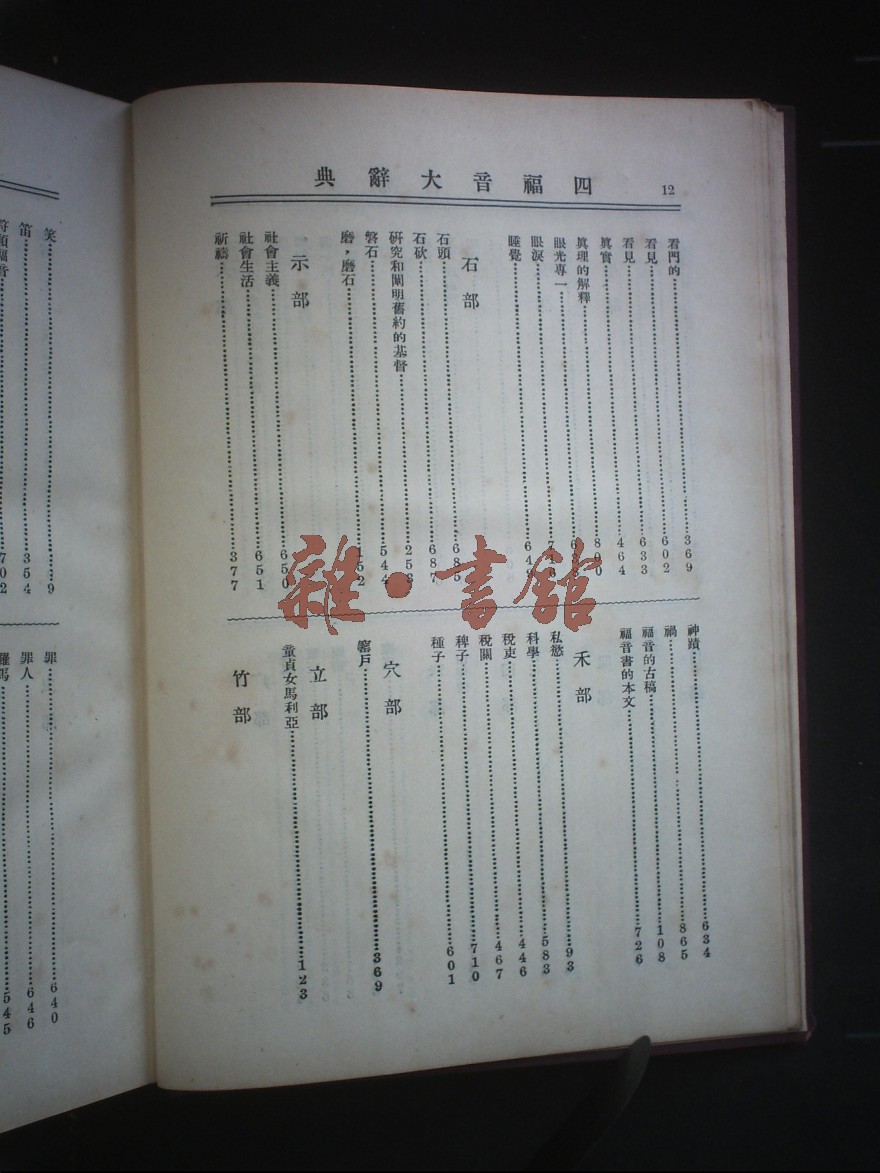 四福音大辭典
12
看門的369
看見602
看見633
眞實464
眞理的解釋800
眼光專一
眼淚
睡覺
石部
石頭685
石砍687
研究和闡明舊約的基督253
磐石544
磨,磨石152
示部
社會主義650
社會生活651
祈禱377
神蹟634
禍865
福音的古稿108
福音書的本文726
禾部
私慾93
科學583
稅吏446
稅關467
稗子710
種子601
穴部
窰戶369
立部
童貞女馬利亞123
竹部
笑9
笛354
702
罪640
罪人646
羅馬545
雜·書館